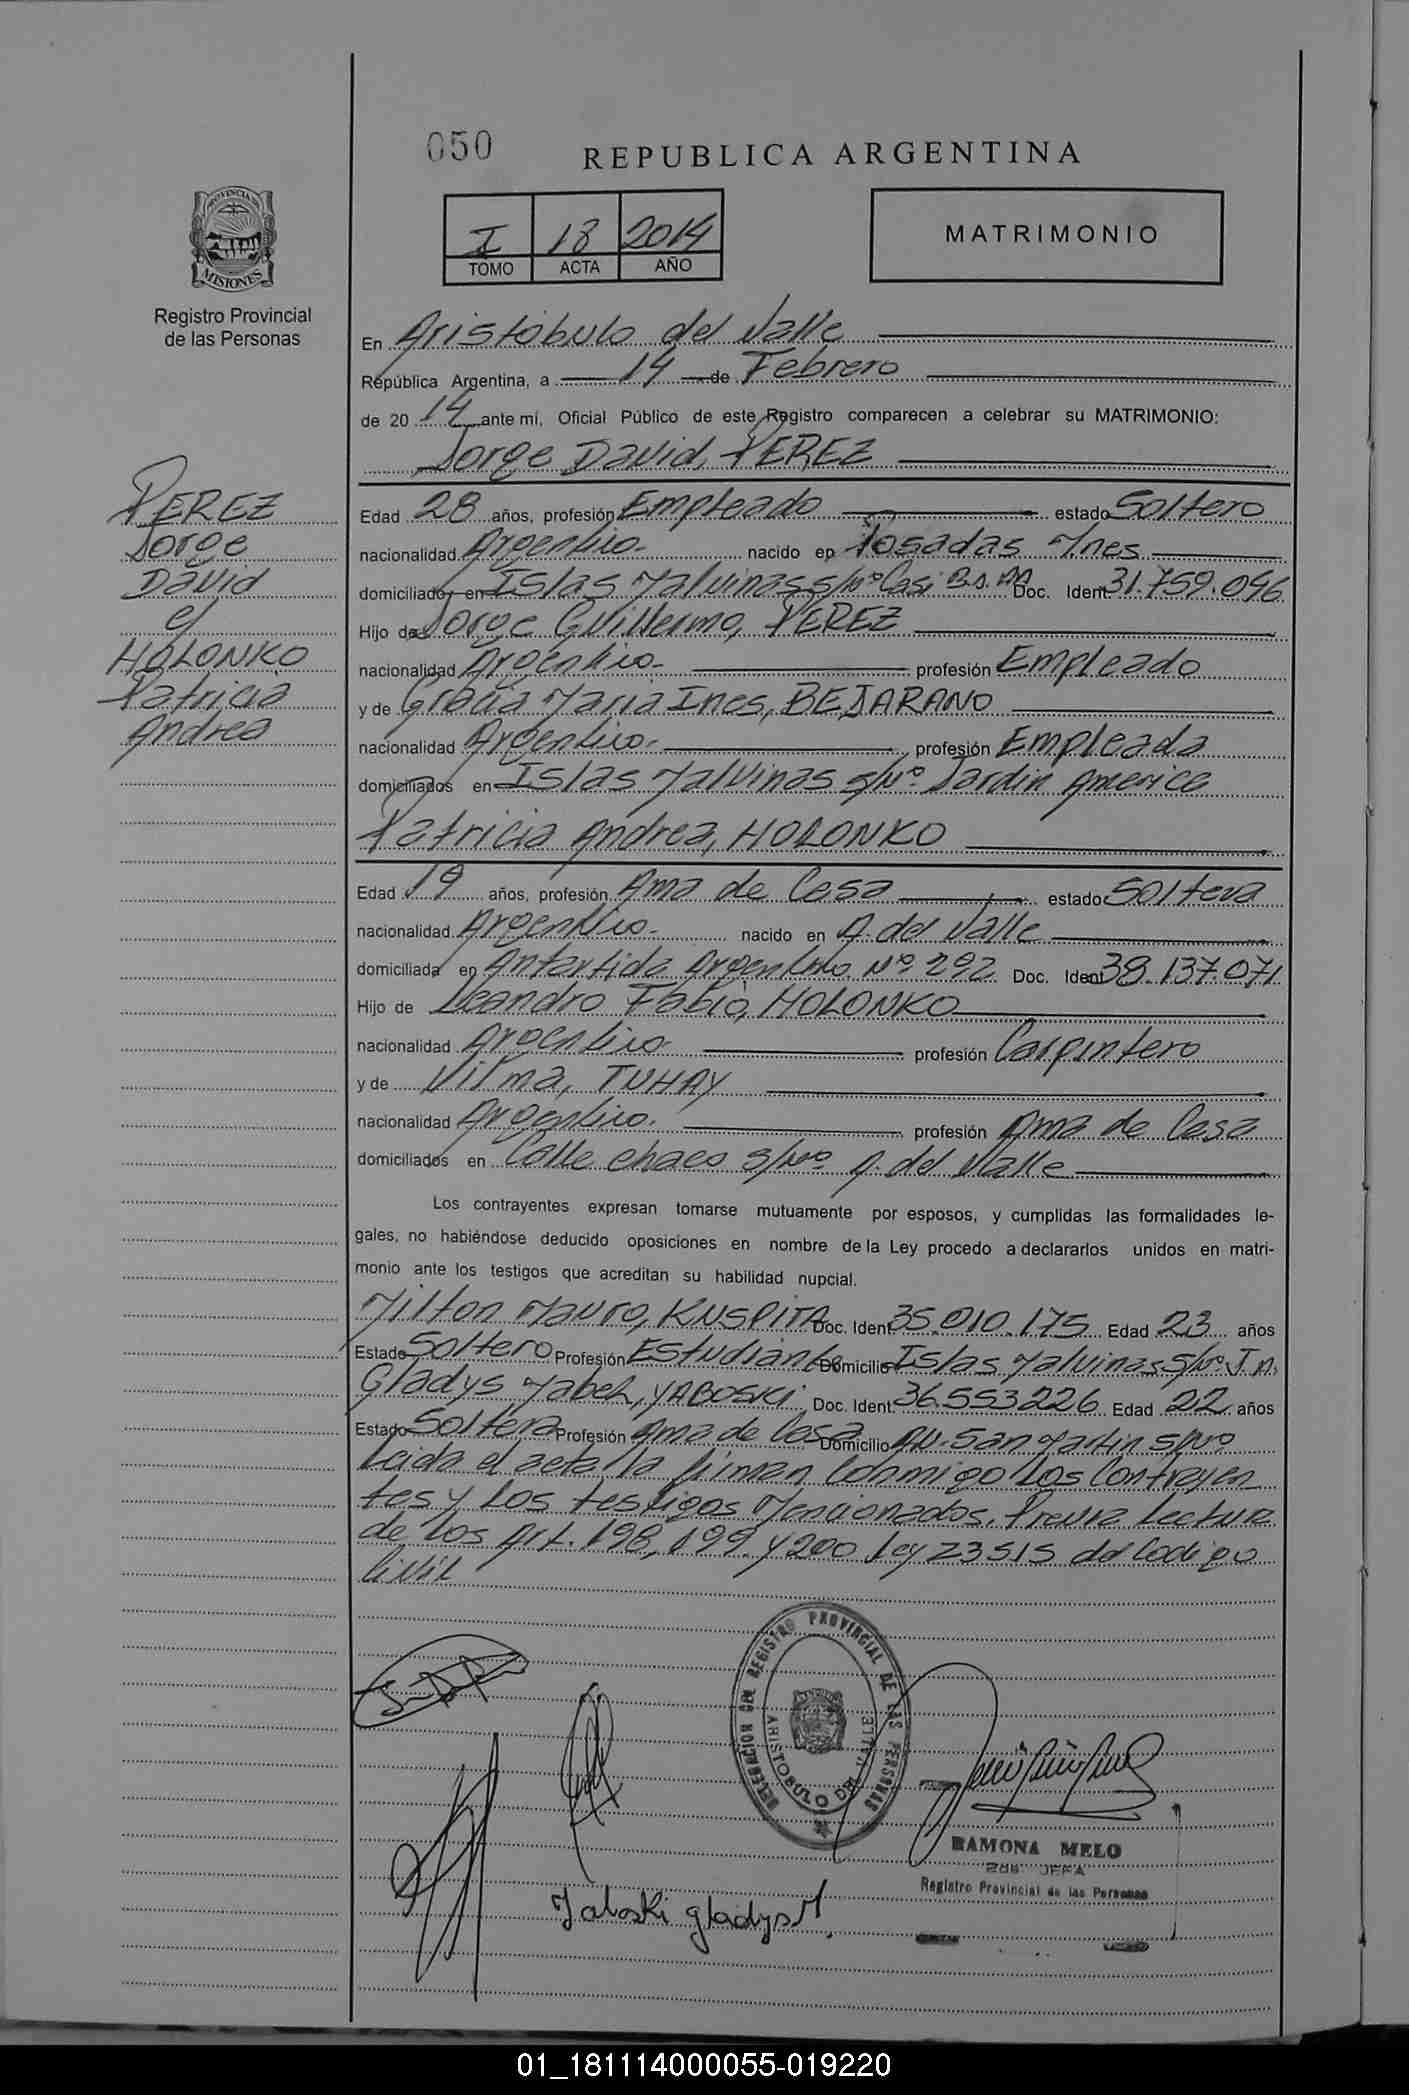 050
REPUBLICA ARGENTINA
PROVINCIA DE MISIONES
I 18 2014
TOMO ACTA AÑO
MATRIMONIO
Registro Provincial
de las Personas
En Aristobulo del Valle
República Argentina, a 14 de Febrero
de 2014 ante mi, Oficial Público de este Registro comparecen a celebrar su MATRIMONIO:
Jorge David, PEREZ
PEREZ
Jorge
David
c/
HOLONKO
Patricia
Andrea
Edad 28 años, profesión Empleado estado Soltero
nacionalidad Argentino nacido en Posadas Mnes
domiciliado en Islas Malvinas s/nº Casi Bs. As Doc. Ident. 31.759.096
Hijo de Jorge Guillermo, PEREZ
nacionalidad Argentino profesión Empleado
y de Maria Ines, BEJARANO
nacionalidad Argentino profesión Empleada
domiciliados en Islas Malvinas s/nº Jardin America
Patricia Andrea, HOLONKO
Edad 19 años, profesión Ama de Casa estado Soltera
nacionalidad Argentino nacido en A. del Valle
domiciliada en Antartida Argentina Nº 292 Doc. Ident 38.137.071
Hijo de Leandro Fabio, HOLONKO
nacionalidad Argentino profesión Carpintero
y de Vilma, TUHAY
nacionalidad Argentino profesión Ama de Casa
domiciliados en Calle Chaco s/nº A. del Valle
Los contrayentes expresan tomarse mutuamente por esposos, y cumplidas las formalidades le-
gales, no habiéndose deducido oposiciones en nombre de la Ley procedo a declararlos unidos en matri-
monio ante los testigos que acreditan su habilidad nupcial.
Milton Mauro, KUSPITA Doc. Ident. 35.010.175 Edad 23 años
Estado Soltero Profesión Estudiante Domicilio Islas Malvinas s/nº J.A.
Gladys Mabel, YABOSKI Doc. Ident. 36.553226 Edad 22 años
Estado Soltera Profesión Ama de Casa Domicilio AV. San Martin s/nº
Leida el acta la firman conmigo los Contrayen
tes y los testigos Mencionados. Previa Lectura
de los Art. 198, 199 y 200 Ley 23515 del Codigo
Civil
DELEGACION DEL REGISTRO PROVINCIAL DE LAS PERSONAS
ARISTOBULO DEL VALLE
RAMONA MELO
JEFA
Registro Provincial de las Personas
Yaboski gladys M.
01_181114000055-019220